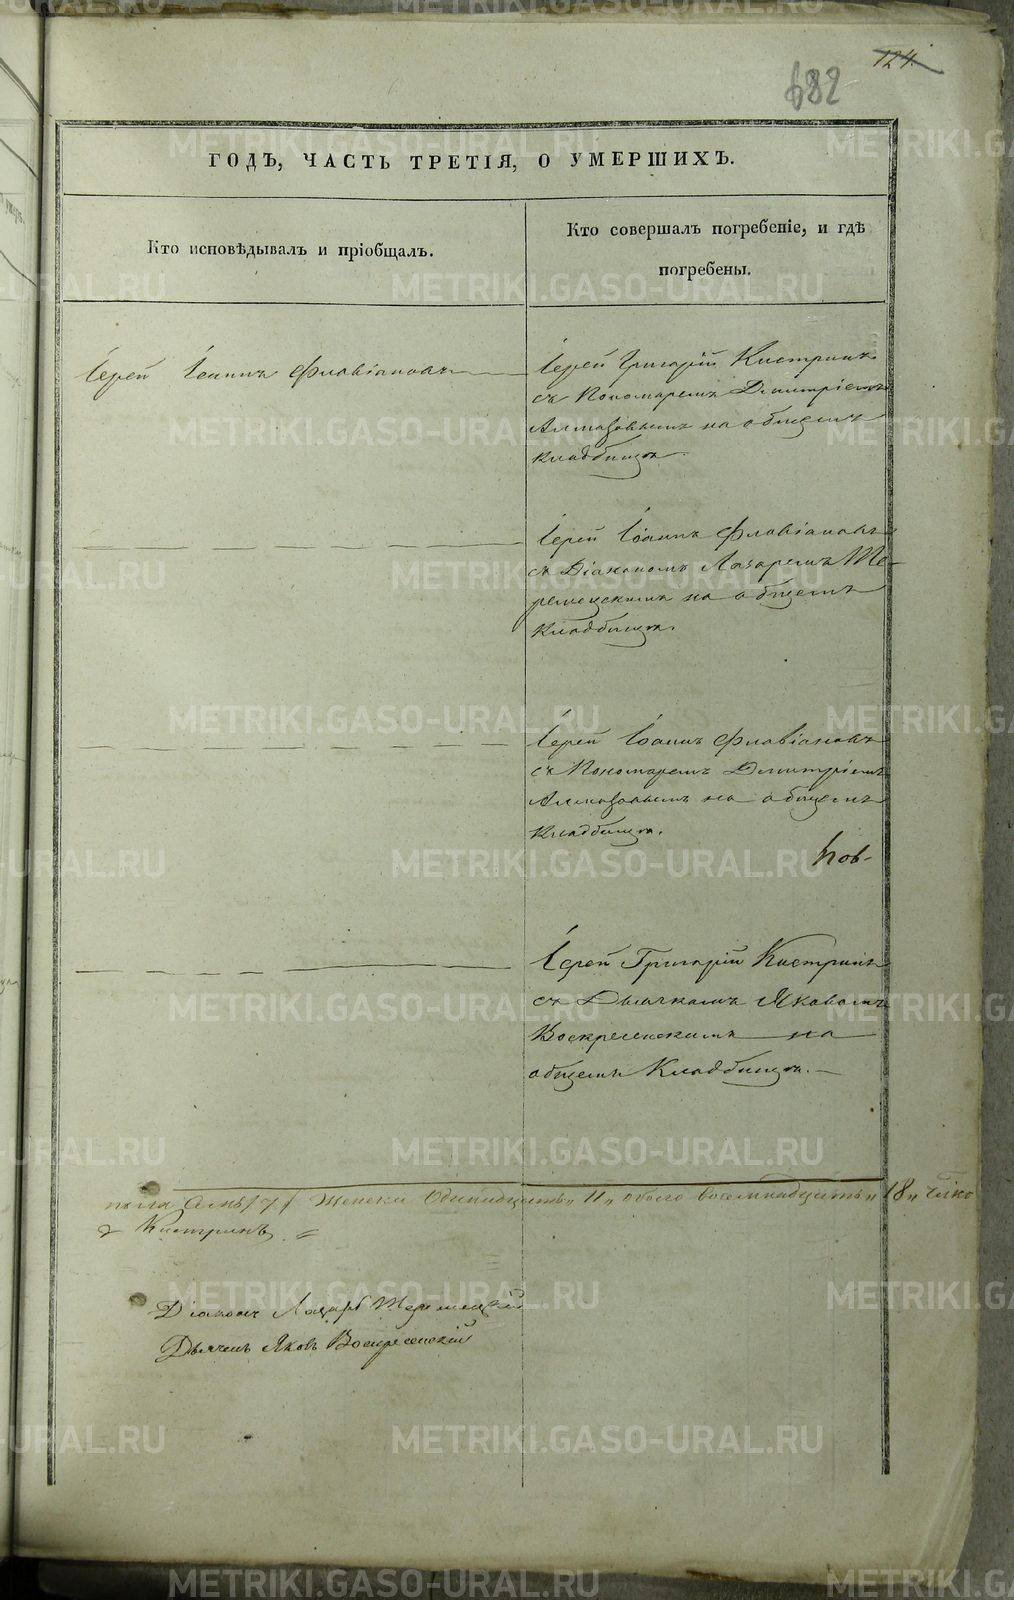 124.
682
ГОДЪ, ЧАСТЬ ТРЕТІЯ, О УМЕРШИХЪ.
Кто исповѣдывалъ и пріобщалъ.
Кто совершалъ погребеніе, и гдѣ
погребены.
Іерей Іоаннъ Флавіановъ
Іерей Григорій Кистринъ
съ Пономаремъ Димитріемъ
Алмазовымъ на общемъ
кладбищѣ.
Іерей Іоаннъ Флавіановъ
съ Діакономъ Лазаремъ Ше-
ремецкимъ на общемъ
кладбищѣ.
Іерей Іоаннъ Флавіановъ
съ Пономаремъ Димитріемъ
Алмазовымъ на общемъ
кладбищѣ.
Пов-
Іерей Григорій Кистринъ
съ Дьячкомъ Яковомъ
Воскресенскимъ на
общемъ Кладбищѣ.
пола семь /7/ женска одинадцать „11„ обоего восемнадцать „18„
Кистринъ
Діаконъ Лазарь Шеремецкій
Дьячекъ Яковъ Воскресенскій
METRIKI.GASO-URAL.RU